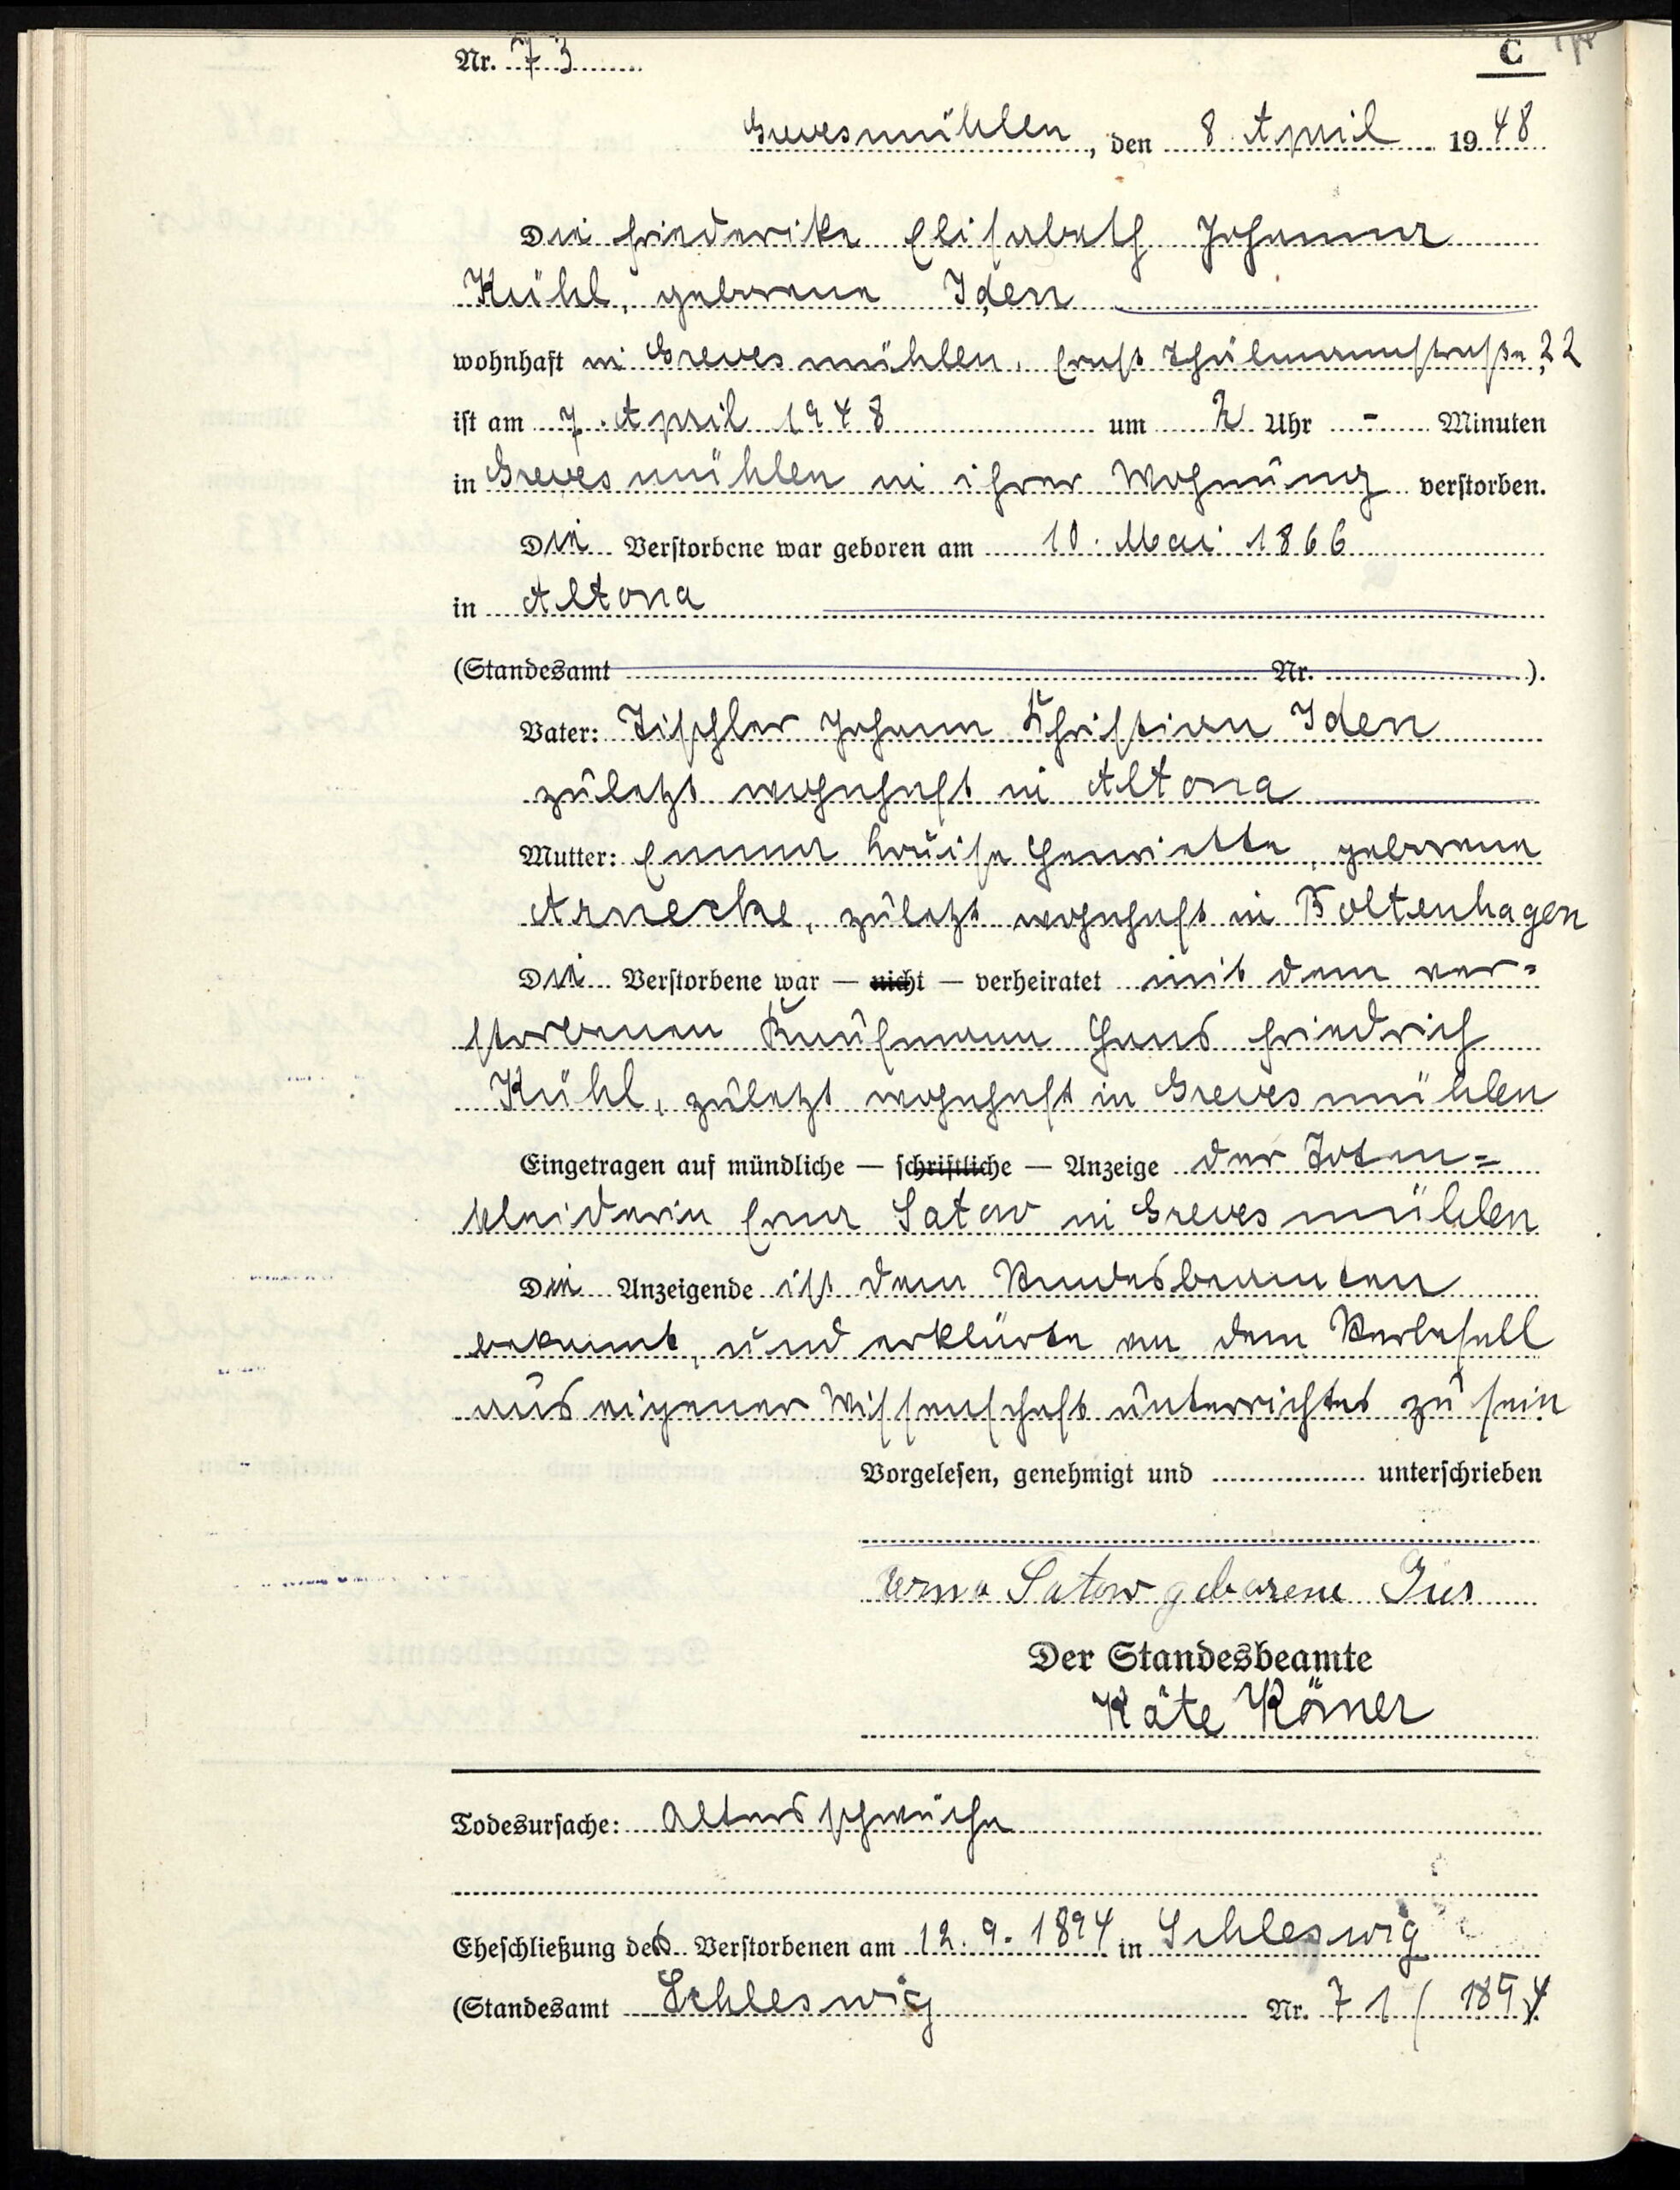 Nr. 73
C
Grevesmühlen, den 8. April 1948
Die Friederike Elisabeth Johanna
Kühl, geborene Iden
wohnhaft in Grevesmühlen, Ernst Thälmannstraße 22
ist am 7. April 1948 um 2 Uhr - Minuten
in Grevesmühlen in ihrer Wohnung verstorben.
Die Verstorbene war geboren am 10. Mai 1866
in Altona
(Standesamt Nr. ).
Vater: Tischler Johann Christian Iden
zuletzt wohnhaft in Altona
Mutter: Emma Louise Henriette, geborene
Arnecke, zuletzt wohnhaft in Boltenhagen
Die Verstorbene war — nicht — verheiratet mit dem ver-
storbenen Kaufmann Hans Friedrich
Kühl, zuletzt wohnhaft in Grevesmühlen
Eingetragen auf mündliche — schriftliche — Anzeige der Toten-
kleiderin Erna Satow in Grevesmühlen
Die Anzeigende ist dem Standesbeamten
bekannt, und erklärte von dem Sterbefall
aus eigener Wissenschaft unterrichtet zu sein
Vorgelesen, genehmigt und unterschrieben
Erna Satow geborene
Der Standesbeamte
Käte Römer
Todesursache: Altersschwäche
Eheschließung der Verstorbenen am 12. 9. 1894 in Schleswig
(Standesamt Schleswig Nr. 71/1894).